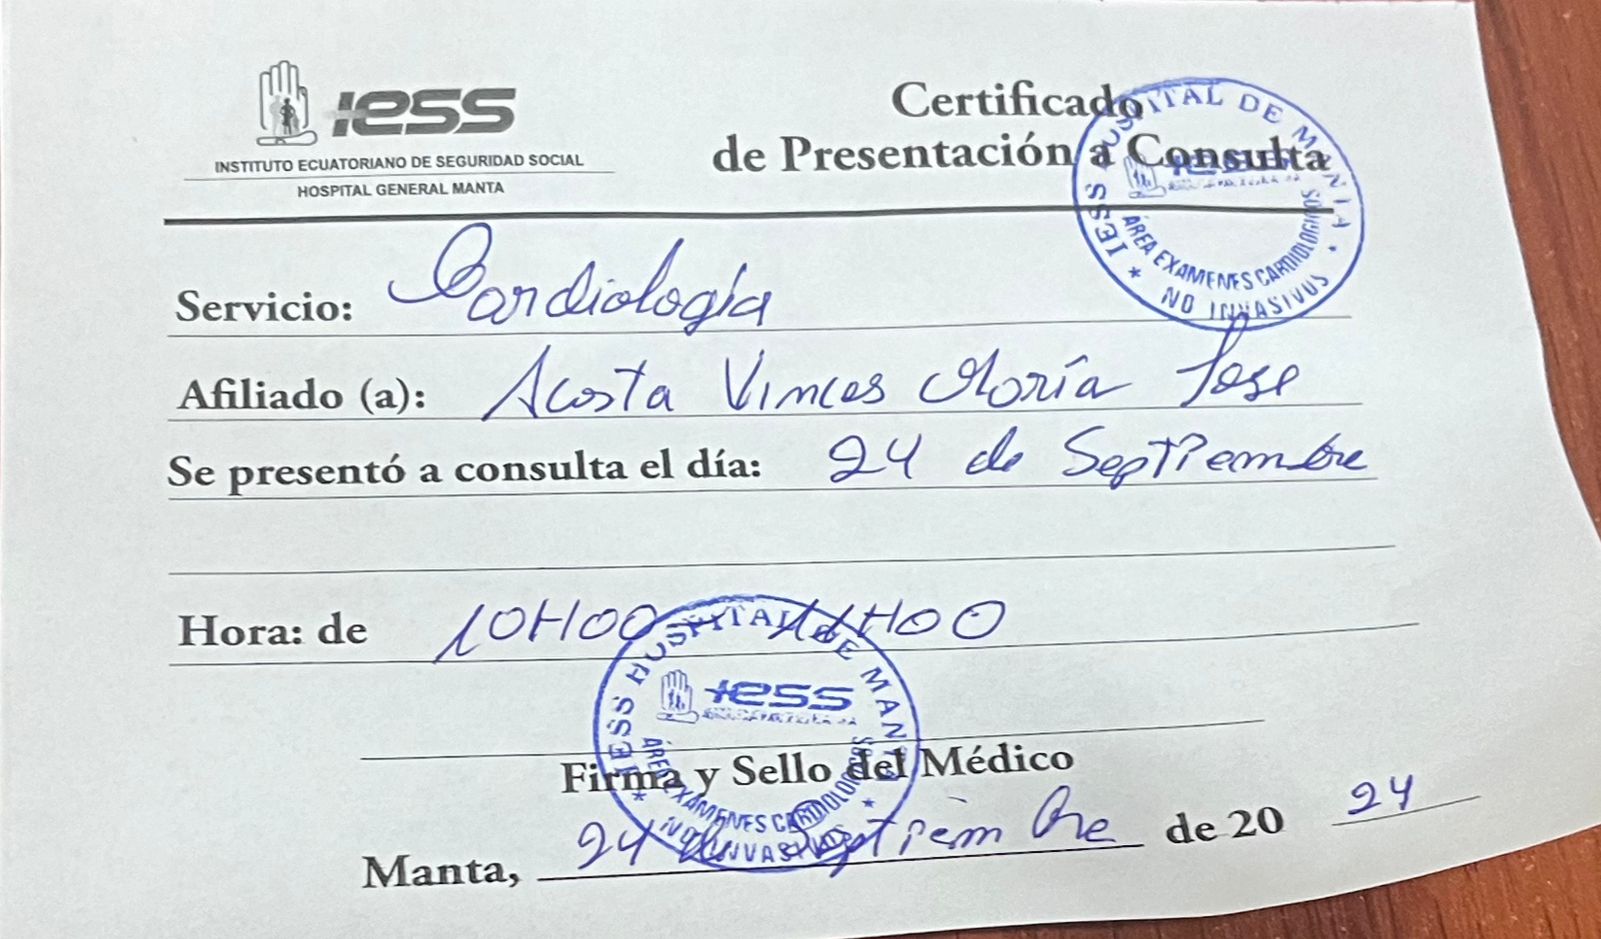 IESS
INSTITUTO ECUATORIANO DE SEGURIDAD SOCIAL
HOSPITAL GENERAL MANTA
Certificado
de Presentación a Consulta
IESS HOSPITAL DE MANTA
IESS
ÁREA EXAMENES CARDIOLOGICOS
NO INVASIVOS
Servicio: Cardiología
Afiliado (a): Acosta Vinces María Jose
Se presentó a consulta el día: 24 de Septiembre
Hora: de 10H00 - 11H00
IESS HOSPITAL DE MANTA
IESS
ÁREA EXAMENES CARDIOLOGICOS
NO INVASIVOS
Firma y Sello del Médico
Manta, 24 de Septiembre de 20 24